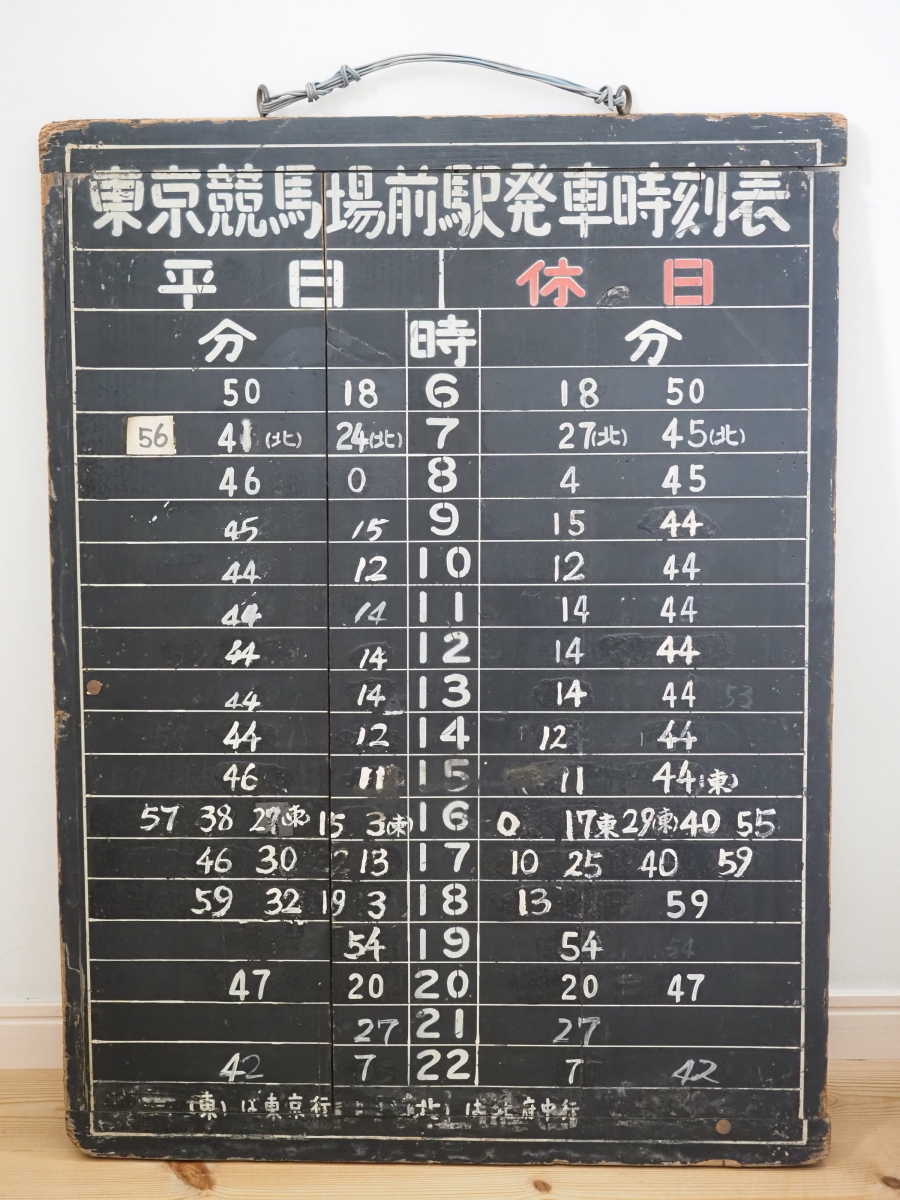 東京競馬場前駅発車時刻表
平日 休日
分 時 分
50 18 6 18 50
56 41(北) 24(北) 7 27(北) 45(北)
46 0 8 4 45
45 15 9 15 44
44 12 10 12 44
44 14 11 14 44
44 14 12 14 44
44 14 13 14 44 53
44 12 14 12 44
46 11 15 11 44(東)
57 38 27(東) 15 3(東) 16 0 17東 29(東) 40 55
46 30 13 17 10 25 40 59
59 32 19 3 18 13 59
54 19 54 54
47 20 20 20 47
27 21 27
42 7 22 7 42
(東)は東京行 (北)は北府中行